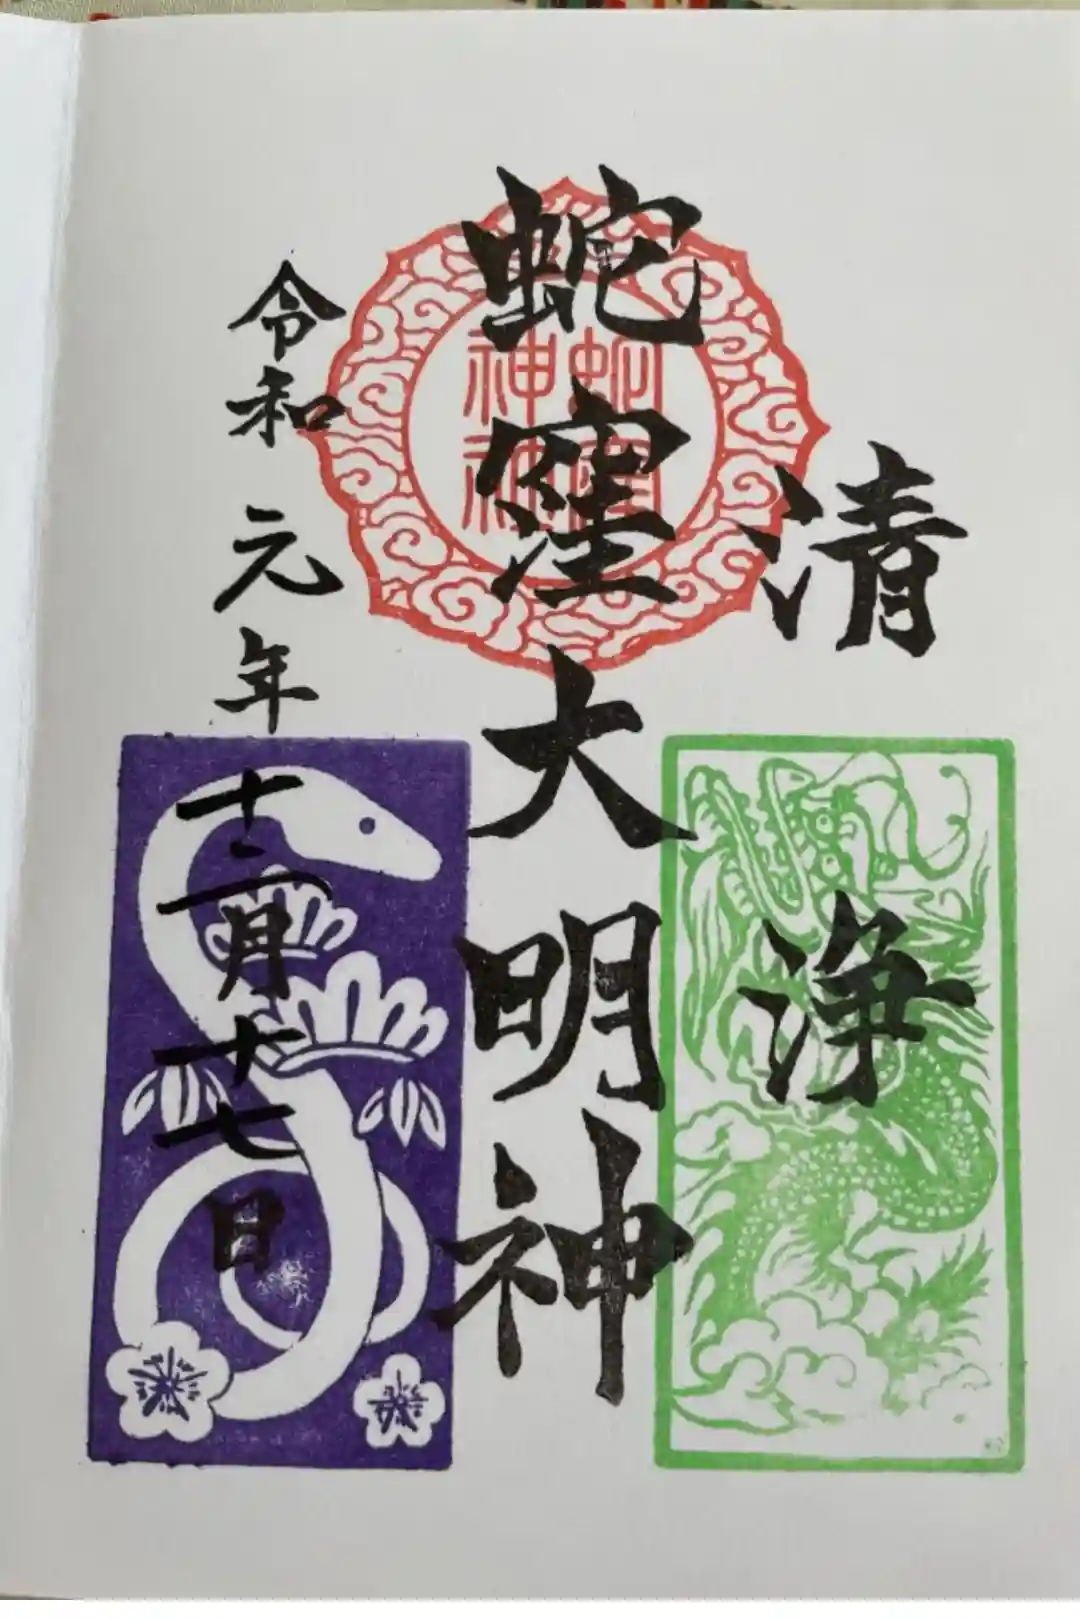 清浄
蛇窪大明神
蛇窪
神社
令和元年十二月十七日